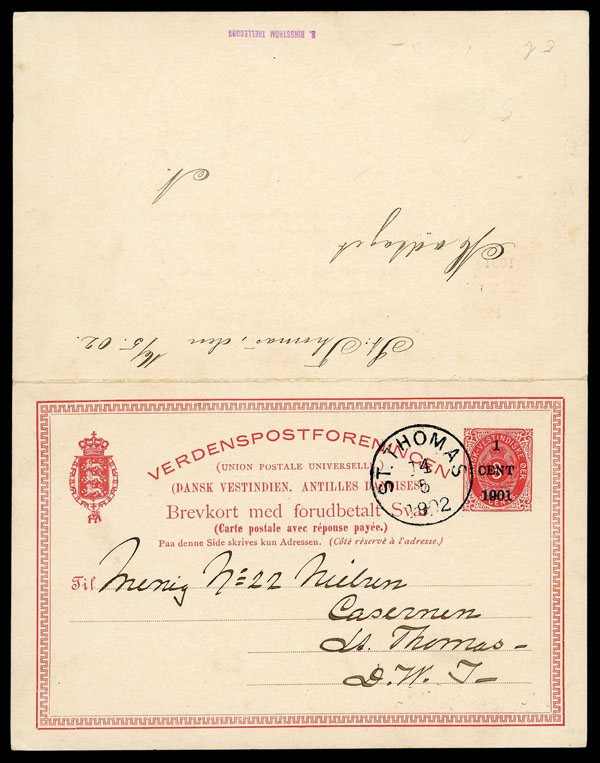 S. RINGSTRÖM TRELLEBORG
N.
Modtaget
St. Thomas, den 14/5. 02.
VERDENSPOSTFORENINGEN
(UNION POSTALE UNIVERSELLE)
(DANSK VESTINDIEN. ANTILLES DANOISES.)
Brevkort med forudbetalt Svar.
(Carte postale avec réponse payée.)
Paa denne Side skrives kun Adressen. (Côté réservé à l'adresse.)
ST. THOMAS
14
5
1902
1
CENT
1901
Til Menig No 22 Nielsen
Casernen
St. Thomas –
D. W. I –